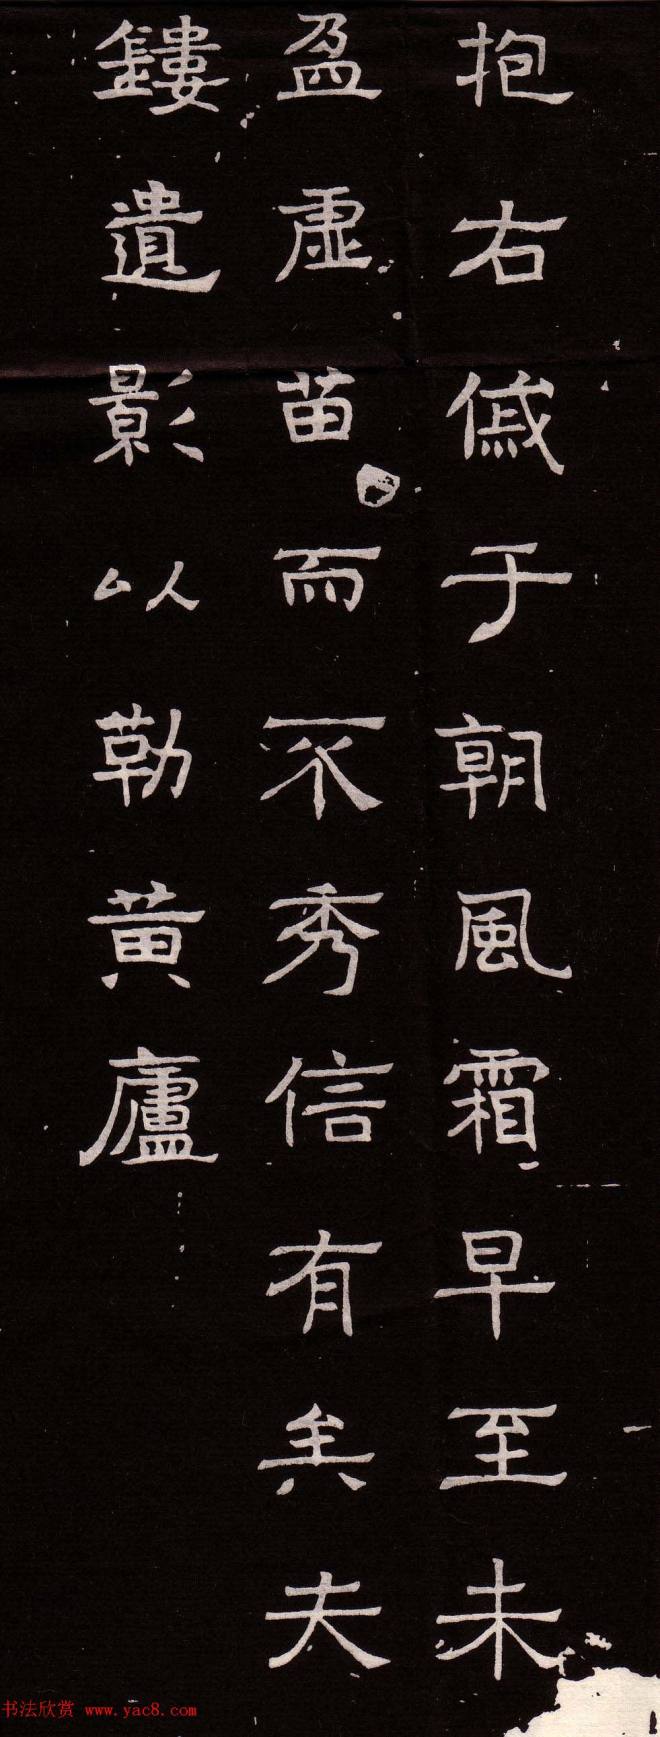 抱右慼于朝風霜早至未
盈虛苗而不秀信有矣夫
鏤遺影以勒黄廬
书法欣赏 www.yac8.com